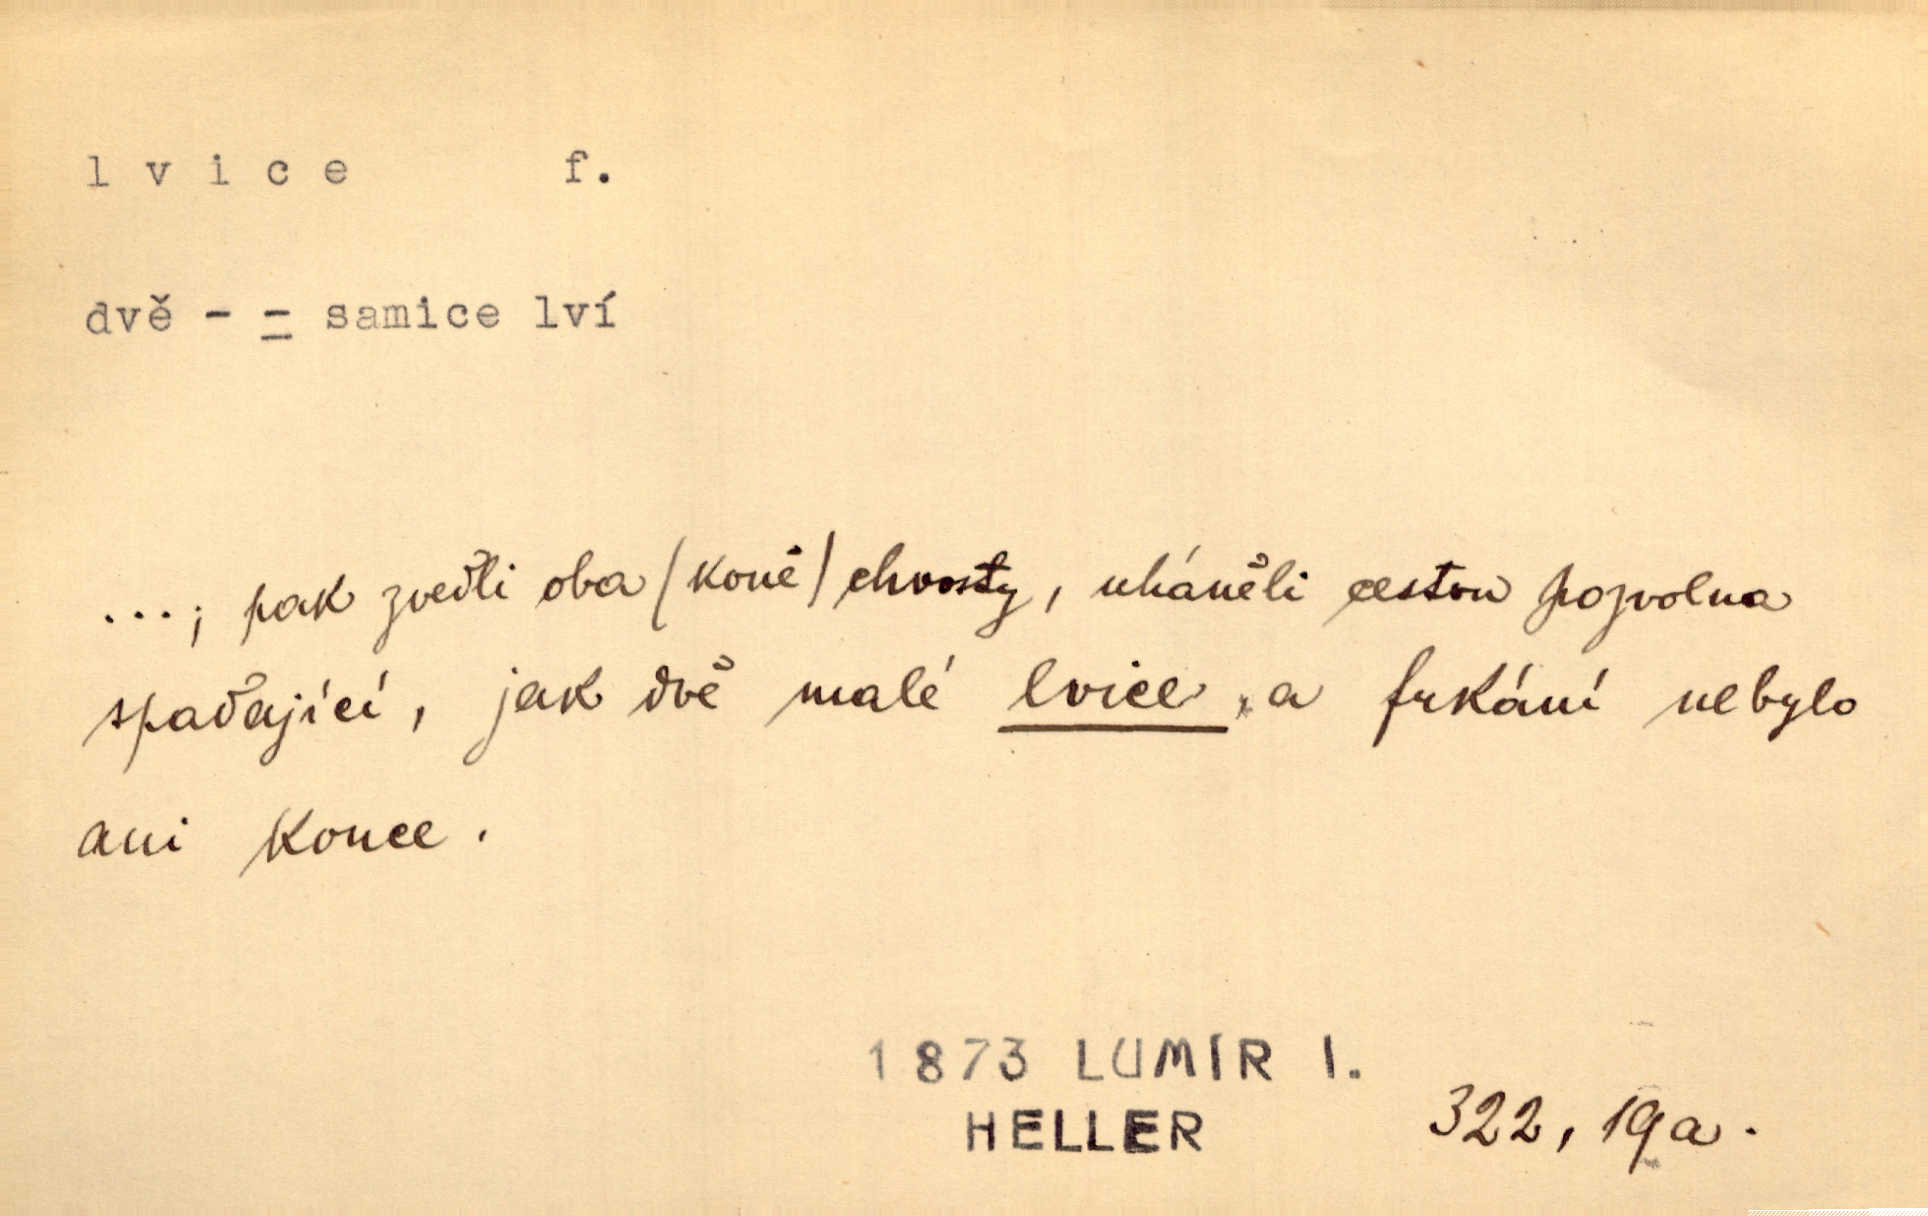 lvice f.
dvě - = samice lví
...; pak zvedli oba (koně) chvosty, uháněli cestou pozvolna
spadající, jak dvě malé lvice, a frkání nebylo
ani konce.
1873 LUMÍR I.
HELLER 322, 19a.